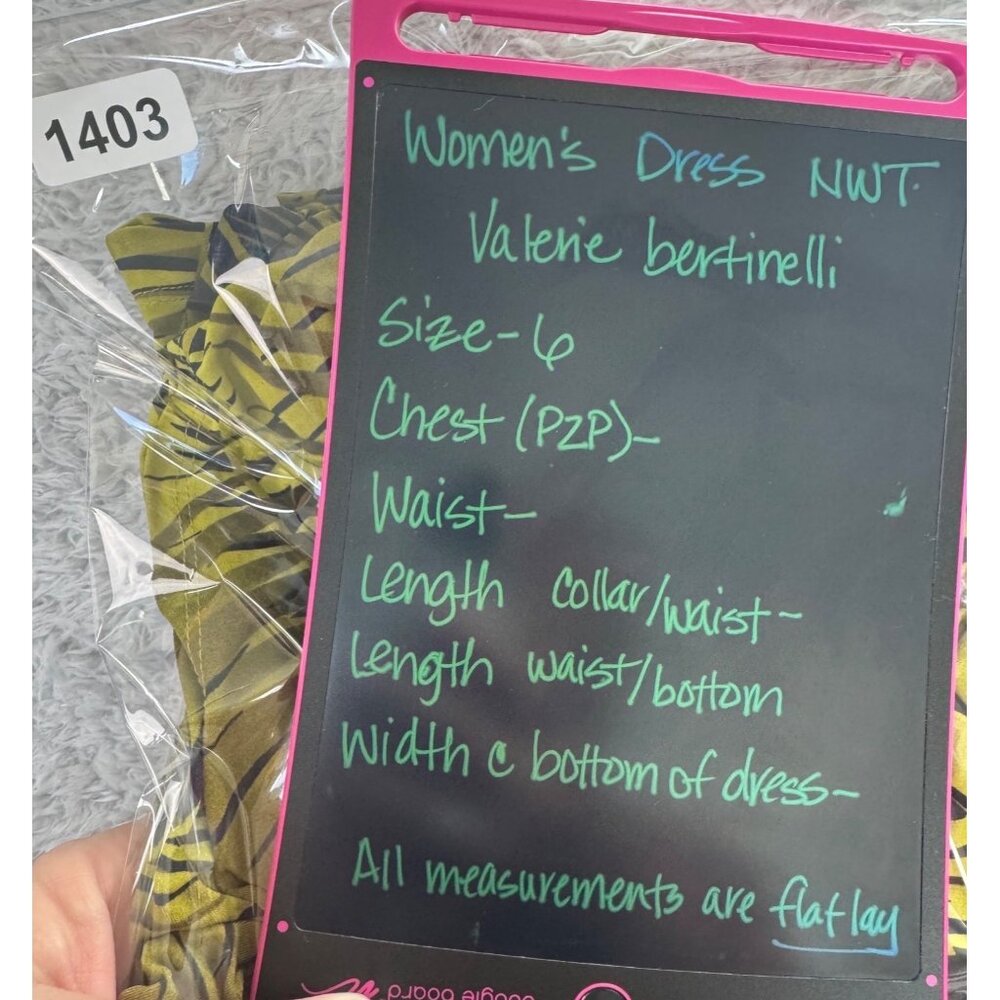 1403
Women's Dress NWT
Valerie bertinelli
Size-6
Chest (P2P)-
Waist-
Length collar/waist-
Length waist/bottom
Width @ bottom of dress-
All measurements are flat lay
board